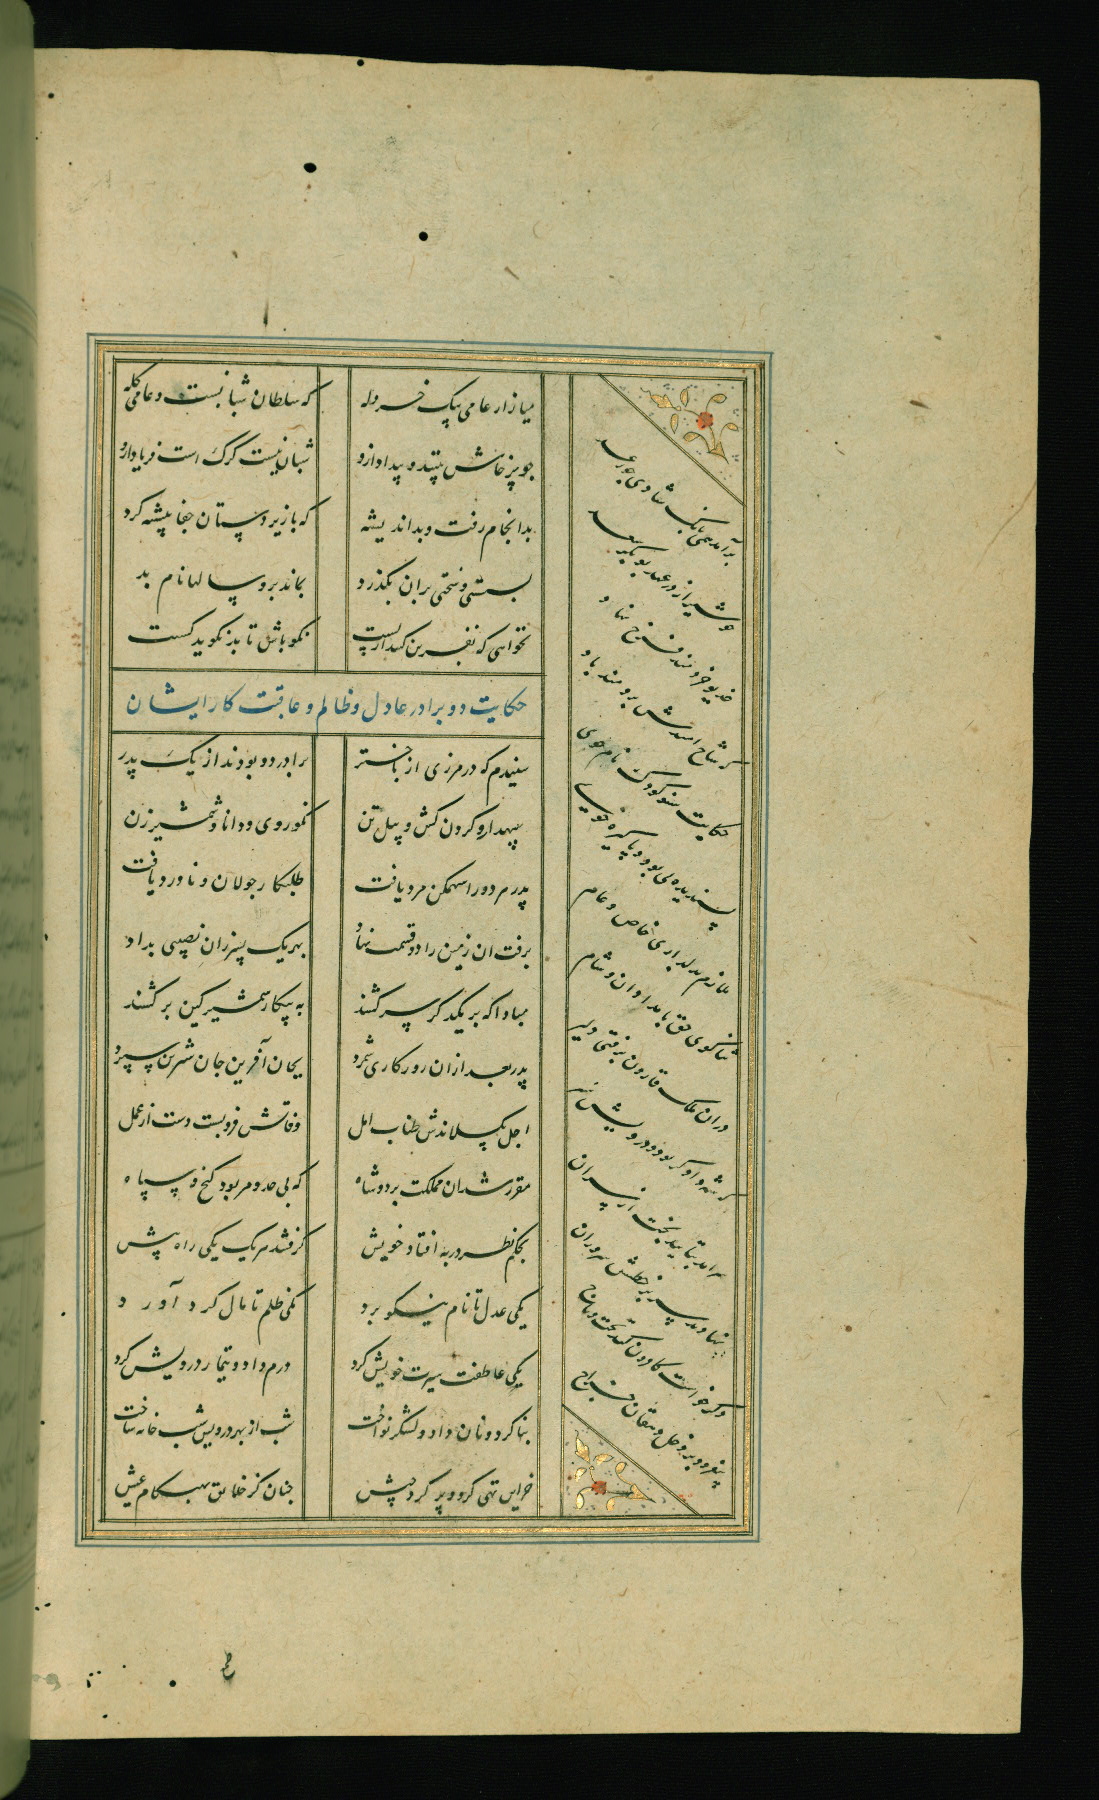 میازار عامی بیک خردله
که سلطان شبانست و عامی گله
چو پرخاش بینند و بیداد ازو
شبان نیست گرگ است فریاد ازو
بدانجام رفت و بد اندیشه
که با زیردستان جفا پیشه کرد
بسستی و سختی بران بگذرد
بماند برو سالها نام بد
نخواهی که نفرین کنند از پست
نکو باش تا بد نگوید کست
حکایت دو برادر عادل و ظالم و عاقبت کار ایشان
شنیدم که در مرزی از باختر
برادر دو بودند از یک پدر
سپهدار و گردن کش و پیل تن
نکو روی و دانا و شمشیر زن
پدر هر دو را سهمگن مرد یافت
طلبکار جولان و ناورد یافت
برفت ان زمین را دو قسمت نهاد
بهر یک پسر زان نصیبی بداد
مبادا که بر یکدگر سر کشند
به پیکار شمشیر کین بر کشند
پدر بعد ازان روزکاری شمرد
بجان آفرین جان شیرین سپرد
اجل بگسلاندش طناب امل
وفاتش فرو بست دست از عمل
مقرر شد ان مملکت بر دو شاه
که بی حد و مر بود گنج و سپاه
بحکم نظر در به افتاد خویش
گرفتند هر یک یکی راه پیش
یکی عدل تا نام نیکو برد
یکی ظلم تا مال کرد آورد
یکی عاطفت سیرت خویش کرد
درم داد و تیمار درویش کرد
بنا کرد و نان داد و لشکر نواخت
شب از بهر درویش شب خانه ساخت
خزاین تهی کرد و پر کرد جیش
چنان کز خلایق بهنکام عیش
برآمد همی بانگ شادی چو رعد
چو شیراز در عهد بوبکر سعد
خدیو خردمند فرخ نهاد
که شاخ امیدش برومند باد
حکایت شنو کودک نام جوی
پسندیده پی بود و پاکیزه خوی
ملازم بدلداری خاص و عام
ثناگوی حق بامدادان و شام
دران ملک قارون برفتی دلیر
که شه دادگر بود و درویش سیر
سرامد بتایید بخت از سران
نهادند سر بر خطش سروران
دگر خواست کافزون کند تخت و تاج
بیفزود بر مرد دهقان خراج